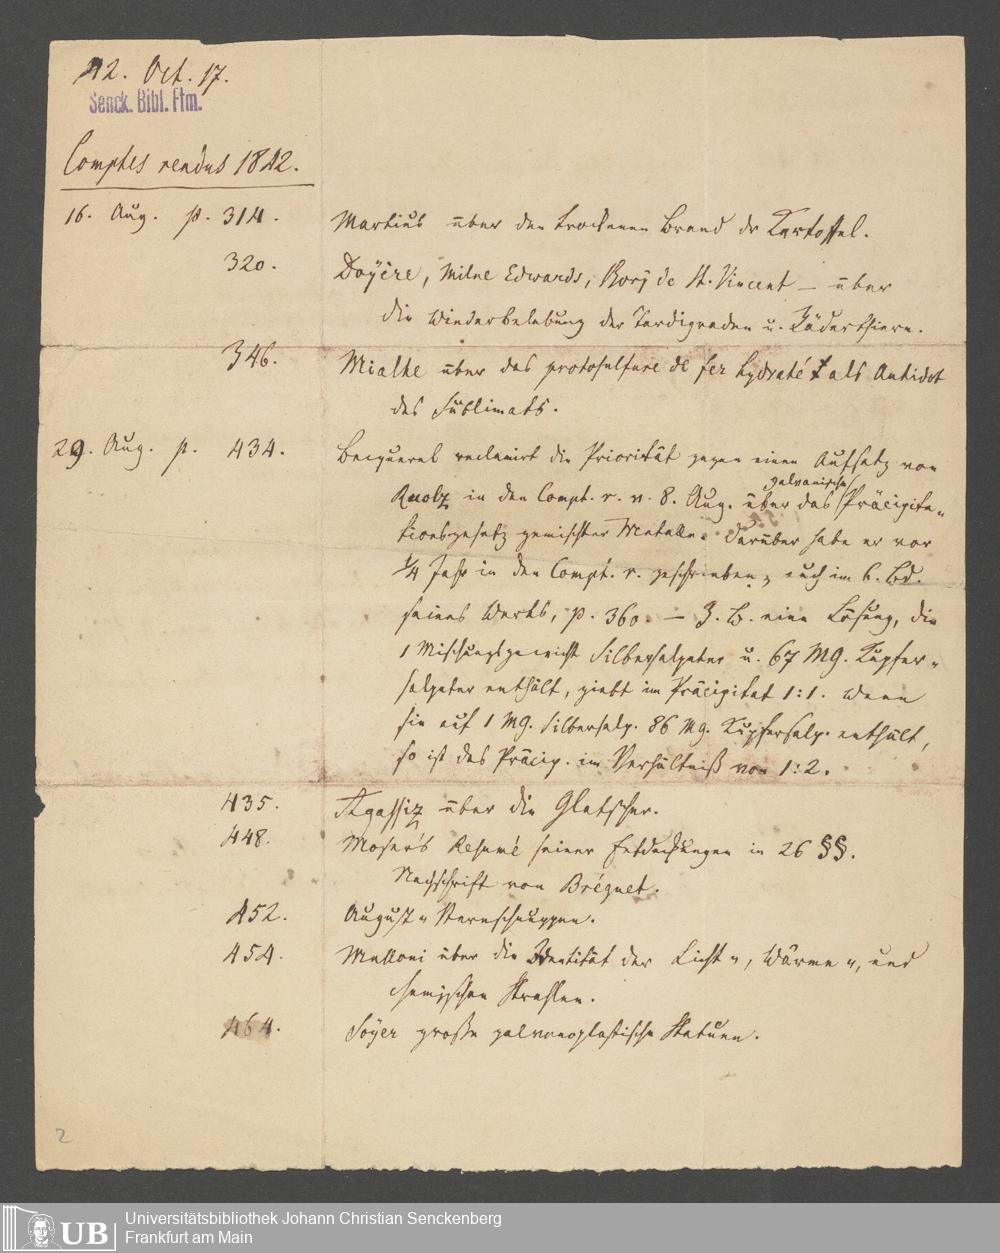 42. Oct. 17.
Senck. Bibl. Ffm.
Comptes rendus 1842.
16. Aug. p. 314. Martius über den trockenen Brand der Kartoffel.
320. Doyère, Milne Edwards, Bory de St. Vincent – über
die Wiederbelebung der Tardigraden u. Räderthiere.
346. Mialhe über das protosulfure de fer hydraté als Antidot
des Sublimats.
29. Aug. p. 434. Becquerel reclamirt die Priorität gegen einen Aufsatz von
Ruolz in den Compt. r. v. 8. Aug. über das galvanische Präcipita-
tionsgesetz gemischter Metalle. Darüber habe er vor
1/4 Jahr in den Compt. r. geschrieben, auch im 6. Bd.
seines Werks, p. 360. – Z. B. eine Lösung, die
1 Mischungsgewicht Silbersalpeter u. 67 MG. Kupfer-
salpeter enthält, giebt im Präcipitat 1:1. Wenn
sie auf 1 MG. Silbersalp. 86 MG. Kupfersalp. enthält,
so ist das Präcip. im Verhältniß von 1:2.
435. Agassiz über die Gletscher.
448. Moser's Resumé seiner Entdeckungen in 26 §§.
Nachschrift von Bréguet.
452. August-Sternschnuppen.
454. Melloni über die Identität der Licht-, Wärme-, und
chemischen Strahlen.
464. Soyer große galvanoplastische Statuen.
2
UB
Universitätsbibliothek Johann Christian Senckenberg
Frankfurt am Main